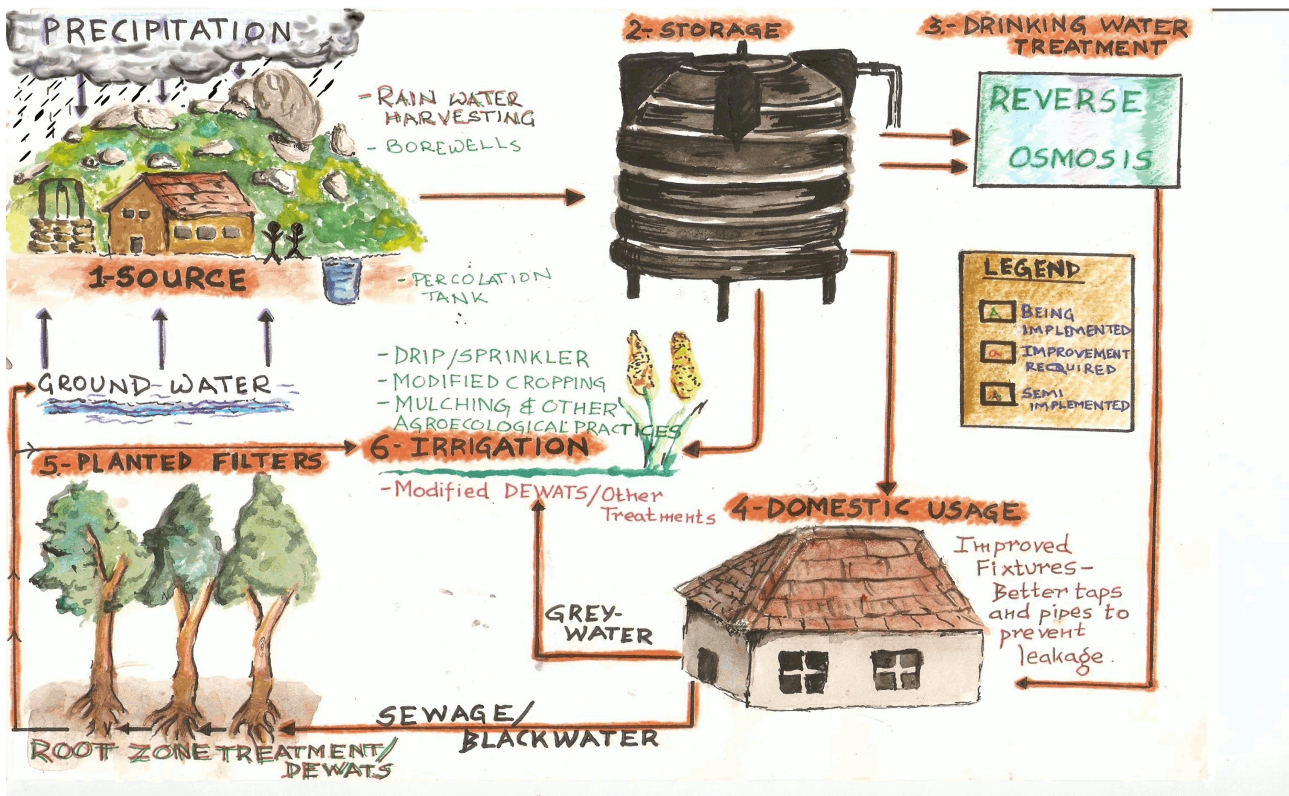 PRECIPITATION
- RAIN WATER
HARVESTING
- BOREWELLS
1-SOURCE
- PERCOLATION
TANK
GROUND WATER
2- STORAGE
3.- DRINKING WATER
TREATMENT
REVERSE
OSMOSIS
LEGEND
A
BEING
IMPLEMENTED
IMPROVEMENT
REQUIRED
A
SEMI
IMPLEMENTED
- DRIP/SPRINKLER
- MODIFIED CROPPING
- MULCHING & OTHER
AGROECOLOGICAL PRACTICES
6- IRRIGATION
- Modified DEWATS/Other
Treatments
4-DOMESTIC USAGE
Improved
Fixtures-
Better taps
and pipes to
prevent
leakage.
GREY-
WATER
SEWAGE/
BLACKWATER
5.-PLANTED FILTERS
ROOT ZONE TREATMENT/
DEWATS